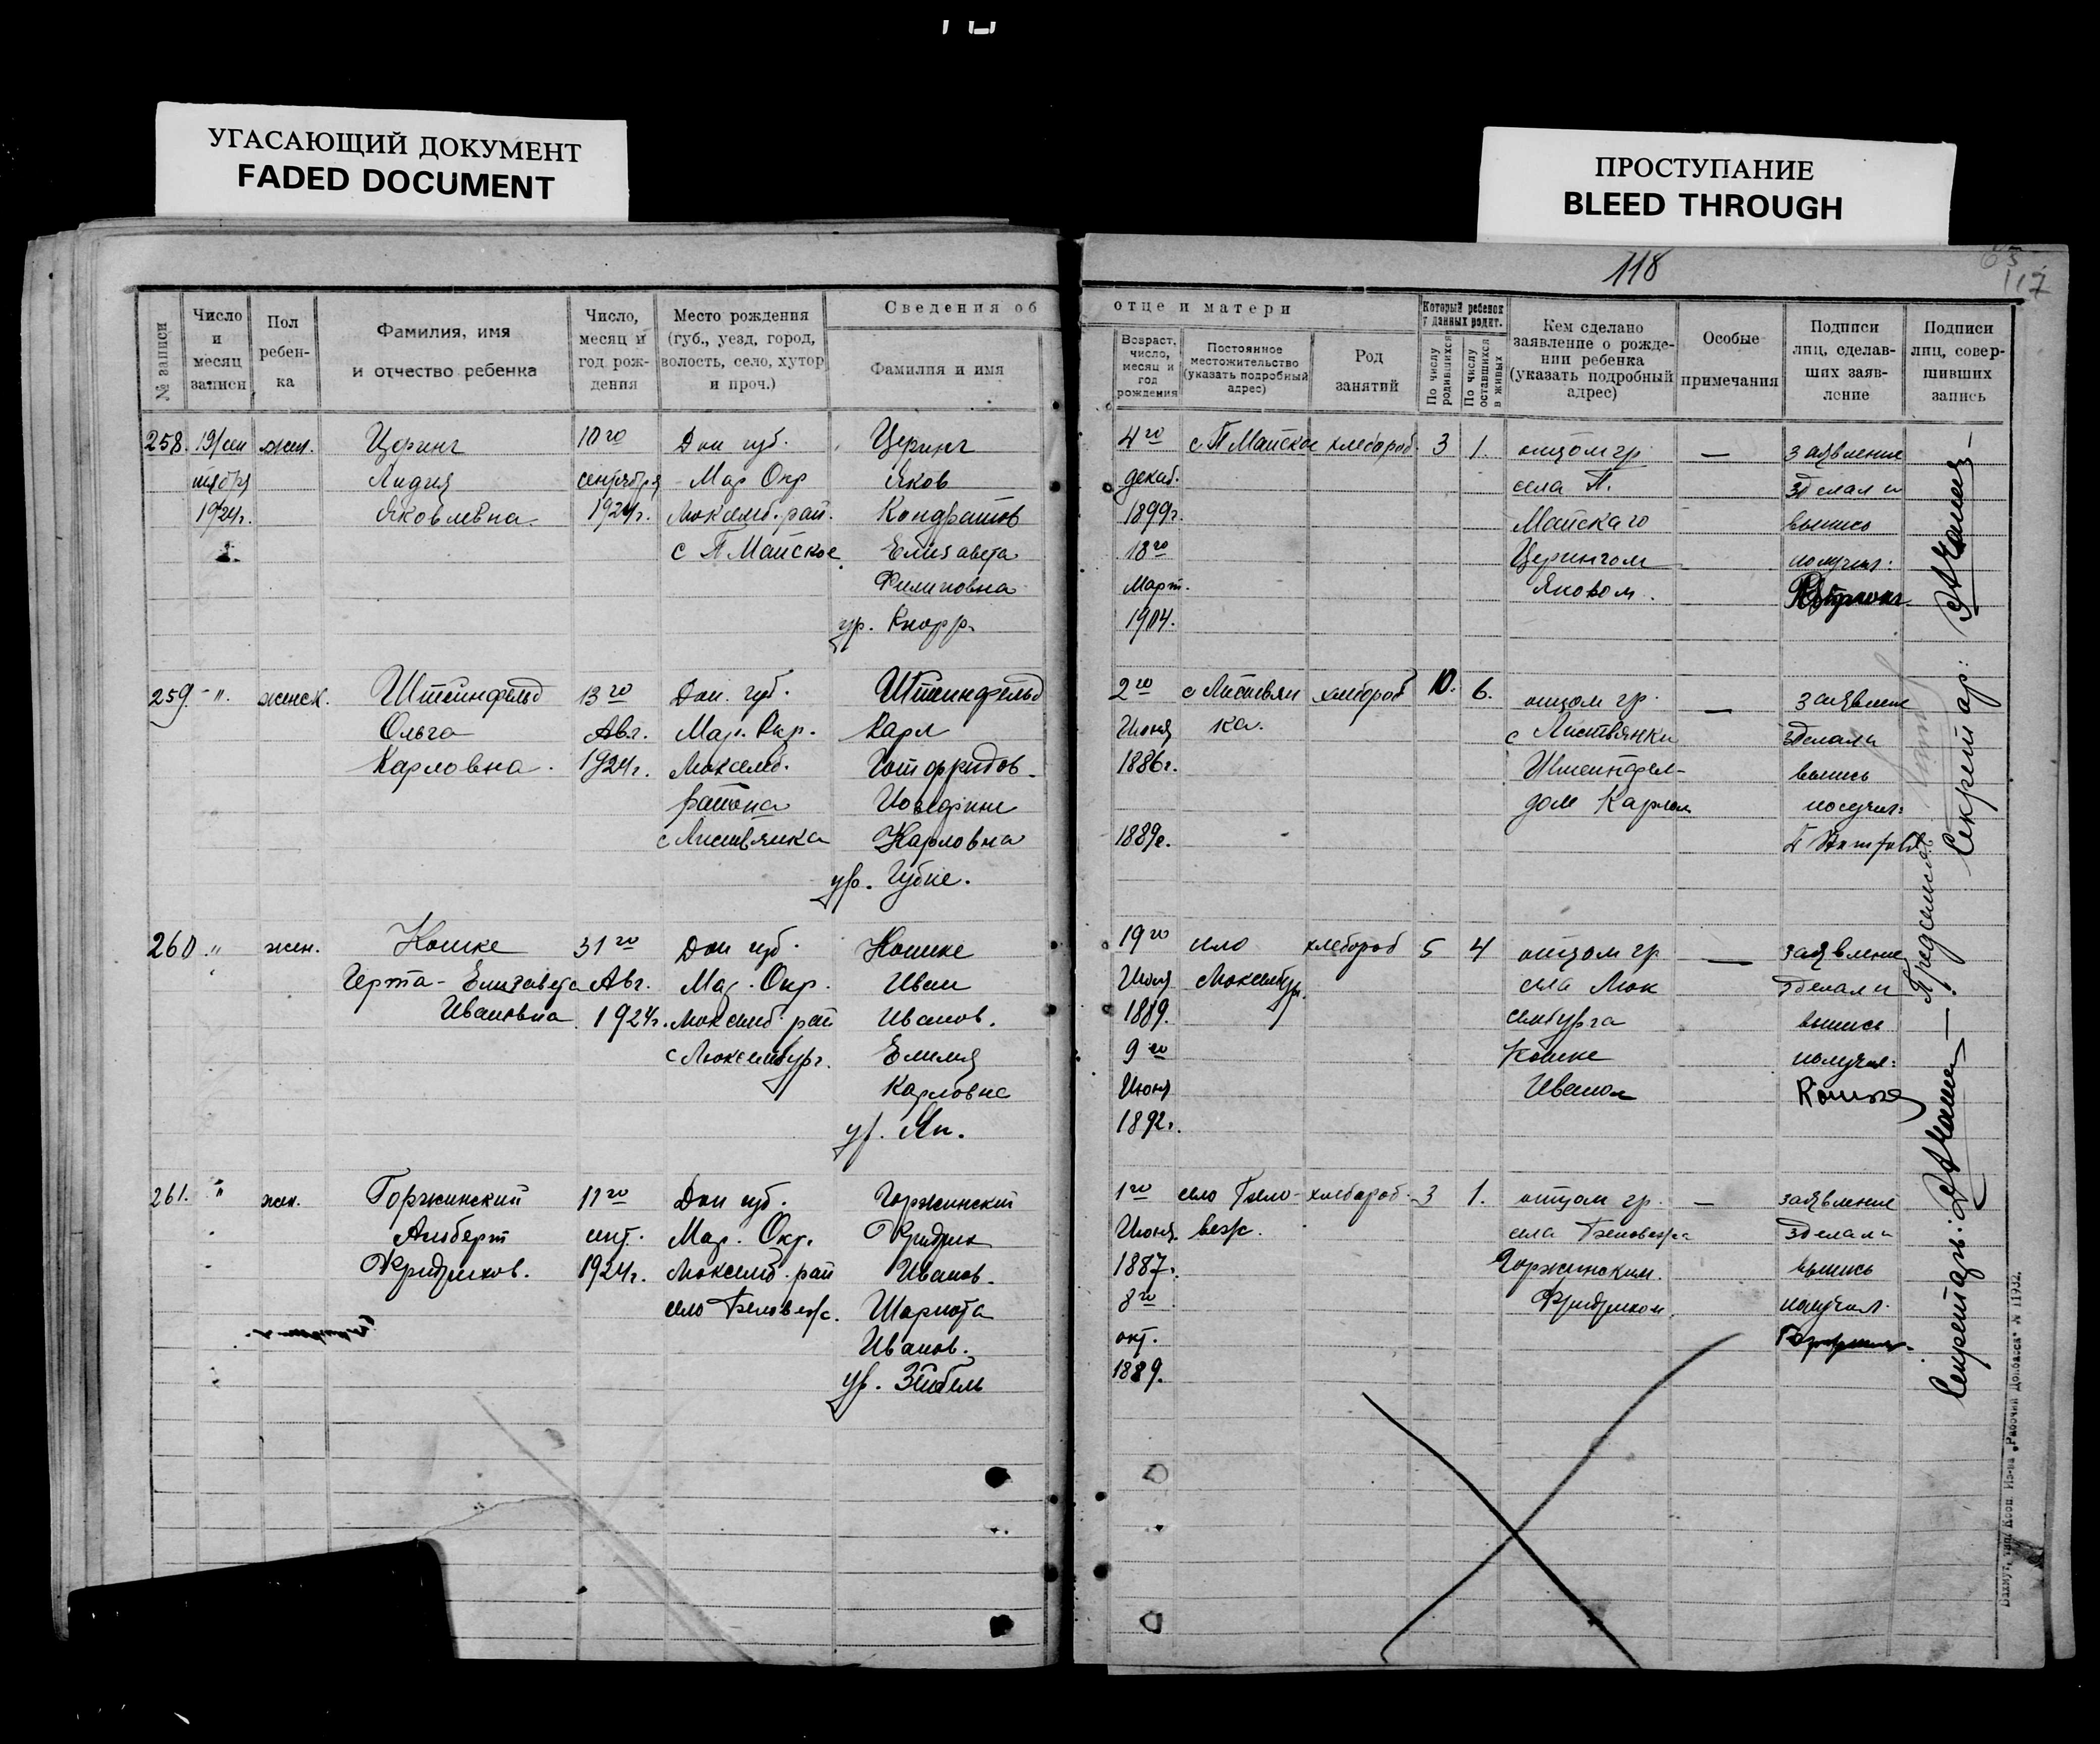 УГАСАЮЩИЙ ДОКУМЕНТ
FADED DOCUMENT
ПРОСТУПАНИЕ
BLEED THROUGH
118
117
№ записи
Число и месяц записи
Пол ребен-ка
Фамилия, имя и отчество ребенка
Число, месяц и год рож-дения
Место рождения (губ., уезд, город, волость, село, хутор и проч.)
Сведения об отце и матери
Фамилия и имя
Возраст, число, месяц и год рождения
Постоянное местожительство (указать подробный адрес)
Род занятий
Который ребенок у данных родит.
По числу родившихся
По числу оставшихся в живых
Кем сделано заявление о рожде-нии ребенка (указать подробный адрес)
Особые примечания
Подписи лиц, сделав-ших заяв-ление
Подписи лиц, совер-шивших запись
258. 19/сен жен. Церинг 10го Дон губ. Церинг 4го с П Майское хлебороб. 3 1. отцом гр. — заявление
тября Лидия сентября Мар Окр Яков декаб. села П. зделал и
1924г. Яковлевна 1924г. Люксемб. рай. Кондратов 1899г. Майскаго выпись
с П Майское Елизавета 18го Церингом получил:
Филиповна Март. Яковом.
ур. Кнорр. 1904.
259. -"- женск. Штейнфельд 13го Дон. губ. Штейнфельд 2го с Листвян хлебороб 10. 6. отцом гр. — заявлен
Ольга Авг. Мар. Окр. Карл Июня ка. с Листвянки зделал и
Карловна. 1924г. Люксемб. Готфридов. 1886г. Штеинфел- выпись
района дом Карлом получил:
с Листвянка Карловна 1889г.
ур.
260 " жен. Кошке 31го Дон губ. Кошке 19го село хлебороб 5 4 отцом гр — заявление
Герта-Елизавета Авг. Мар. Окр. Иван Июля Люксембур. села Люк зделал и
Ивановна 1924г. Люксемб рай Иванов. 1889. сембурга выпись
с Люксембург. Емилия 9го Кошке получил:
Карловна Июня Иваном Кошке
ур. Ян. 1892г.
261. " жен. Горжинский 11го Дон губ. Горжинский 1го село Бело- хлебороб. 3 1. отцом гр. — заявление
Альберт сент. Мар. Окр. Фридрих Июня веж. села Беловежа зделал и
Фридрихов. 1924г. Люксемб. рай Иванов. 1887г. Горжинским. выпись
село Беловеж. Шарлота 8го Фридрихом. получил.
Иванов. окт.
ур. Зейбель 1889.
Секретарь:
Председатель
Секретарь:
Бахмут, тип. Кооп. Из-ва „Рабочий Донбасса“ № 11932.